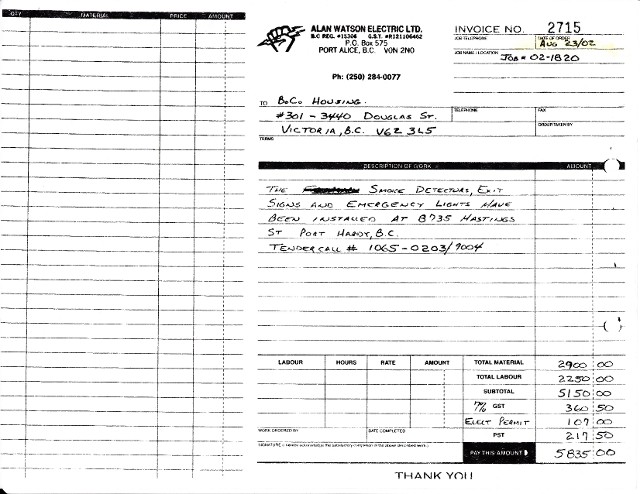 QTY MATERIAL PRICE AMOUNT
ALAN WATSON ELECTRIC LTD.
B.C REG. #15306 G.S.T. #R121106462
P.O. Box 575
PORT ALICE, B.C. V0N 2N0
Ph: (250) 284-0077
INVOICE NO. 2715
JOB TELEPHONE DATE OF ORDER
AUG 23/02
JOB NAME / LOCATION
JOB # 02-1820
TO B.C. HOUSING.
#301 - 3440 DOUGLAS ST.
VICTORIA, B.C. V6Z 3L5
TELEPHONE FAX
ORDER TAKEN BY
TERMS
DESCRIPTION OF WORK AMOUNT
THE SMOKE DETECTORS, EXIT
SIGNS AND EMERGENCY LIGHTS HAVE
BEEN INSTALLED AT 8735 HASTINGS
ST PORT HARDY, B.C.
TENDER CALL # 1065-0203/9004
LABOUR HOURS RATE AMOUNT
TOTAL MATERIAL 2900 00
TOTAL LABOUR 2250 00
SUBTOTAL 5150 00
7% GST 360 50
ELECT PERMIT 107 00
PST 217 50
WORK ORDERED BY DATE COMPLETED
PAY THIS AMOUNT 5835 00
THANK YOU